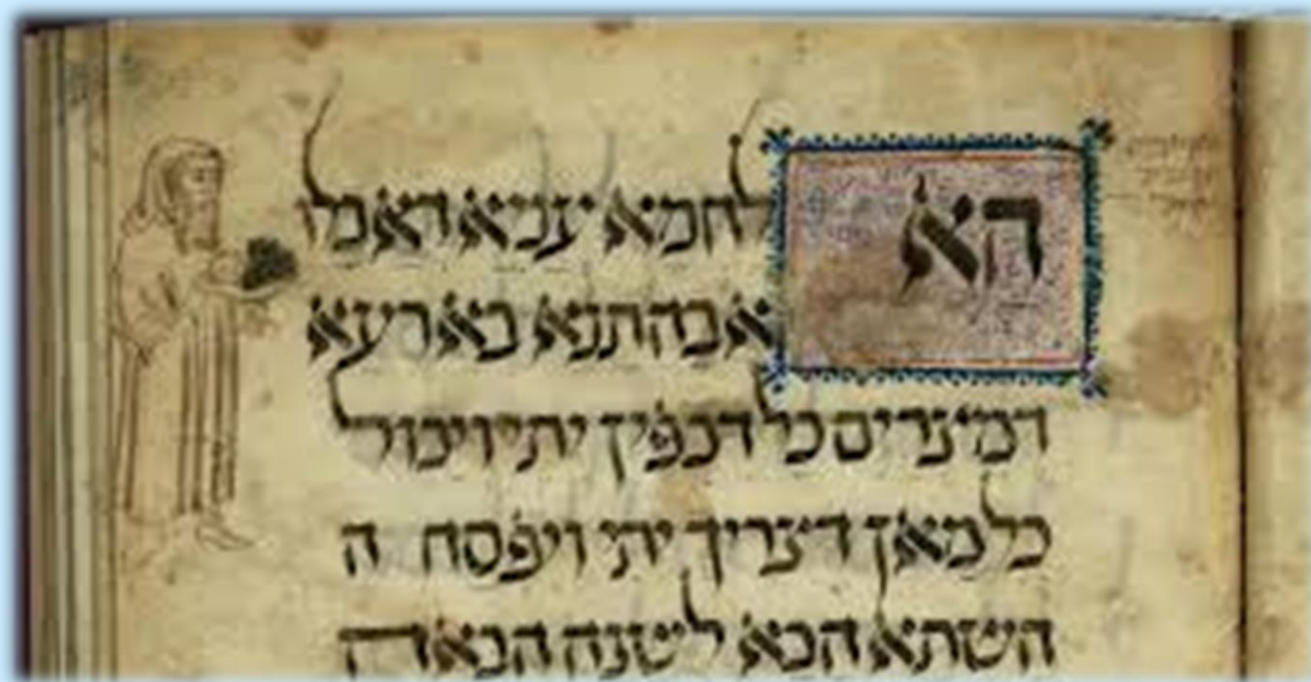 הא לחמא עניא דאכלו
אבהתנא בארעא
דמצרים כל דכפין יתי ויכול
כל מאן דצריך יתי ויפסח ה
השתא הכא לשנה הבאה